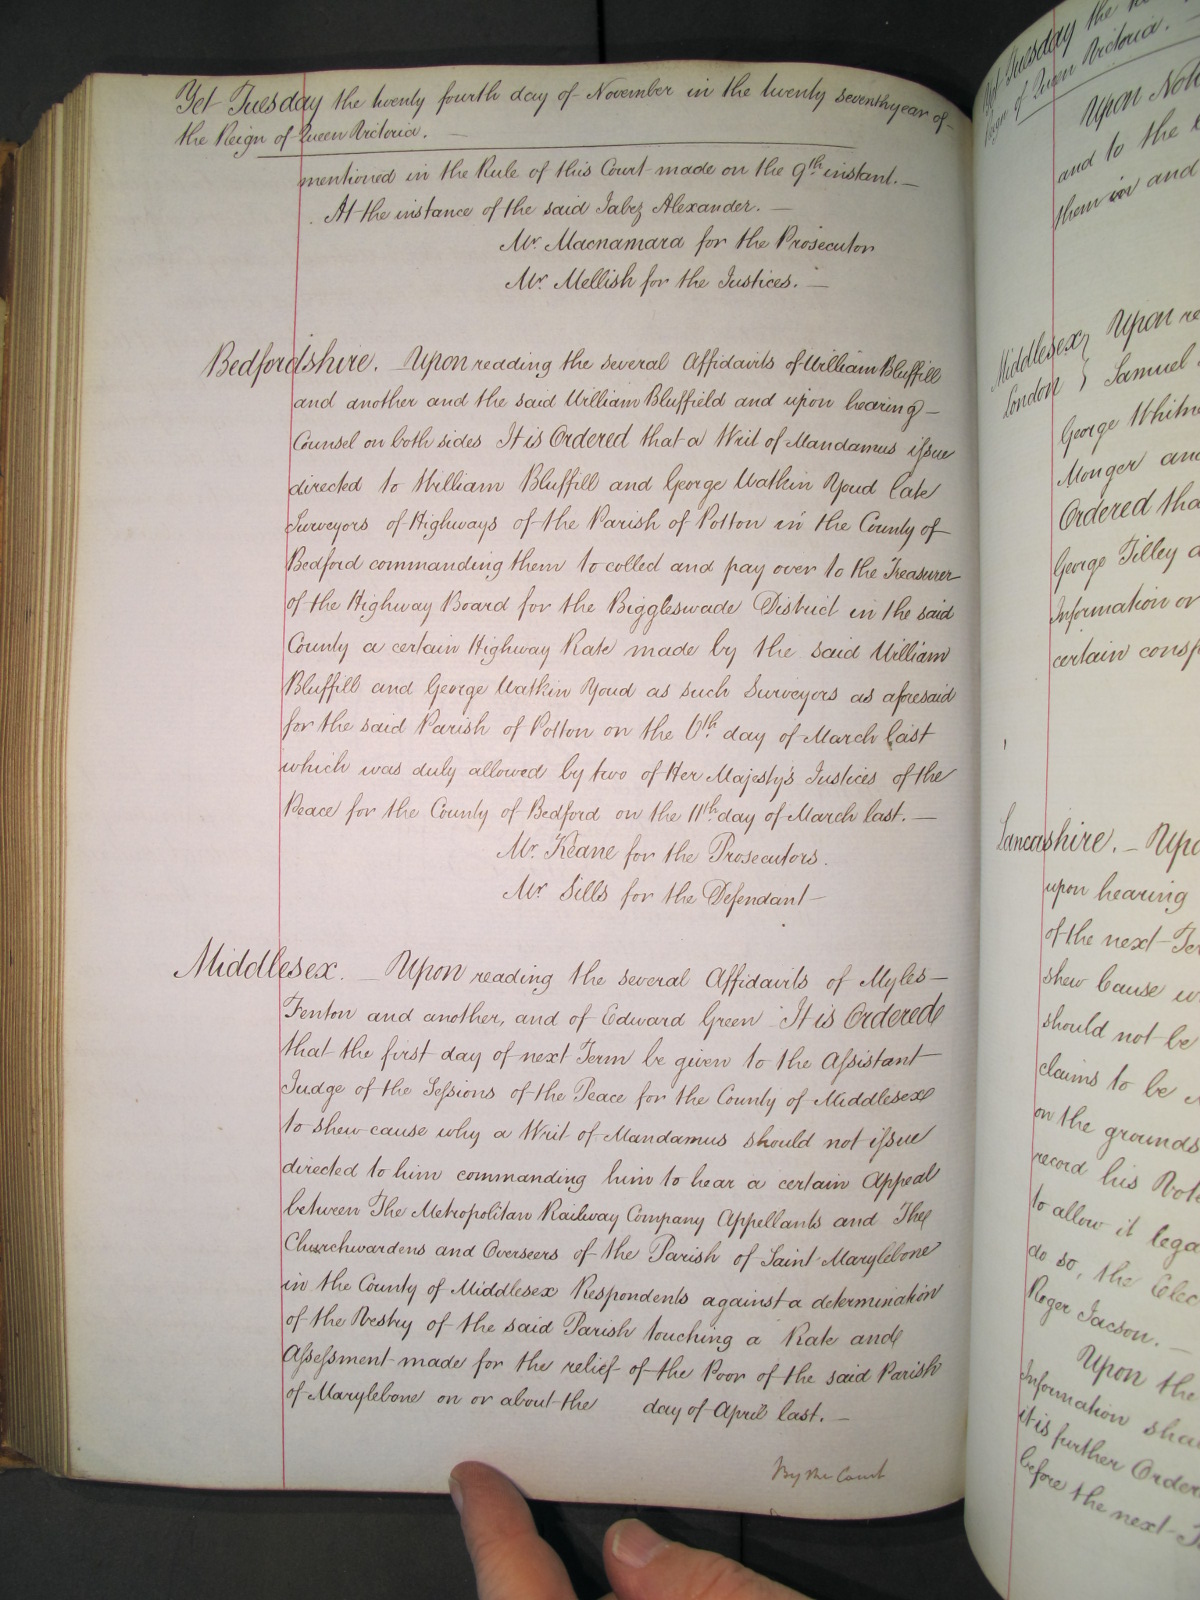 Yet Tuesday the twenty fourth day of November in the twenty seventh year of
the Reign of Queen Victoria. —
mentioned in the Rule of this Court made on the 9th instant. —
At the instance of the said Jabez Alexander. —
Mr. Macnamara for the Prosecutor
Mr. Mellish for the Justices. —
Bedfordshire. — Upon reading the several Affidavits of William Bluffill
and another and the said William Bluffield and upon hearing —
Counsel on both sides It is Ordered that a Writ of Mandamus issue
directed to William Bluffill and George Watkin Youd late
Surveyors of Highways of the Parish of Potton in the County of
Bedford commanding them to collect and pay over to the Treasurer
of the Highway Board for the Biggleswade District in the said
County a certain Highway Rate made by the said William
Bluffill and George Watkin Youd as such Surveyors as aforesaid
for the said Parish of Potton on the 6th. day of March last
which was duly allowed by two of Her Majesty's Justices of the
Peace for the County of Bedford on the 11th. day of March last. —
Mr. Keane for the Prosecutors.
Mr. Sills for the Defendant —
Middlesex. — Upon reading the several Affidavits of Myles —
Fenton and another, and of Edward Green It is Ordered
that the first day of next Term be given to the Assistant
Judge of the Sessions of the Peace for the County of Middlesex
to shew cause why a Writ of Mandamus should not issue
directed to him commanding him to hear a certain Appeal
between The Metropolitan Railway Company Appellants and The
Churchwardens and Overseers of the Parish of Saint Marylebone
in the County of Middlesex Respondents against a determination
of the Vestry of the said Parish touching a Rate and
Assessment made for the relief of the Poor of the said Parish
of Marylebone on or about the day of April last. —
By the Court
Yet Tuesday the
Reign of Queen Victoria.
Upon
and to the
them in and
Middlesex } Upon
London } Samuel
George
Monger and
Ordered tha
George Tilley
Information or
certain consp
Lancashire. — Upo
upon hearing
of the next
shew Cause
should not be
claims to be
on the grounds
record his
to allow it lega
do so, the Elec
Roger Jacson. —
Upon the
Information
it is further Order
before the next